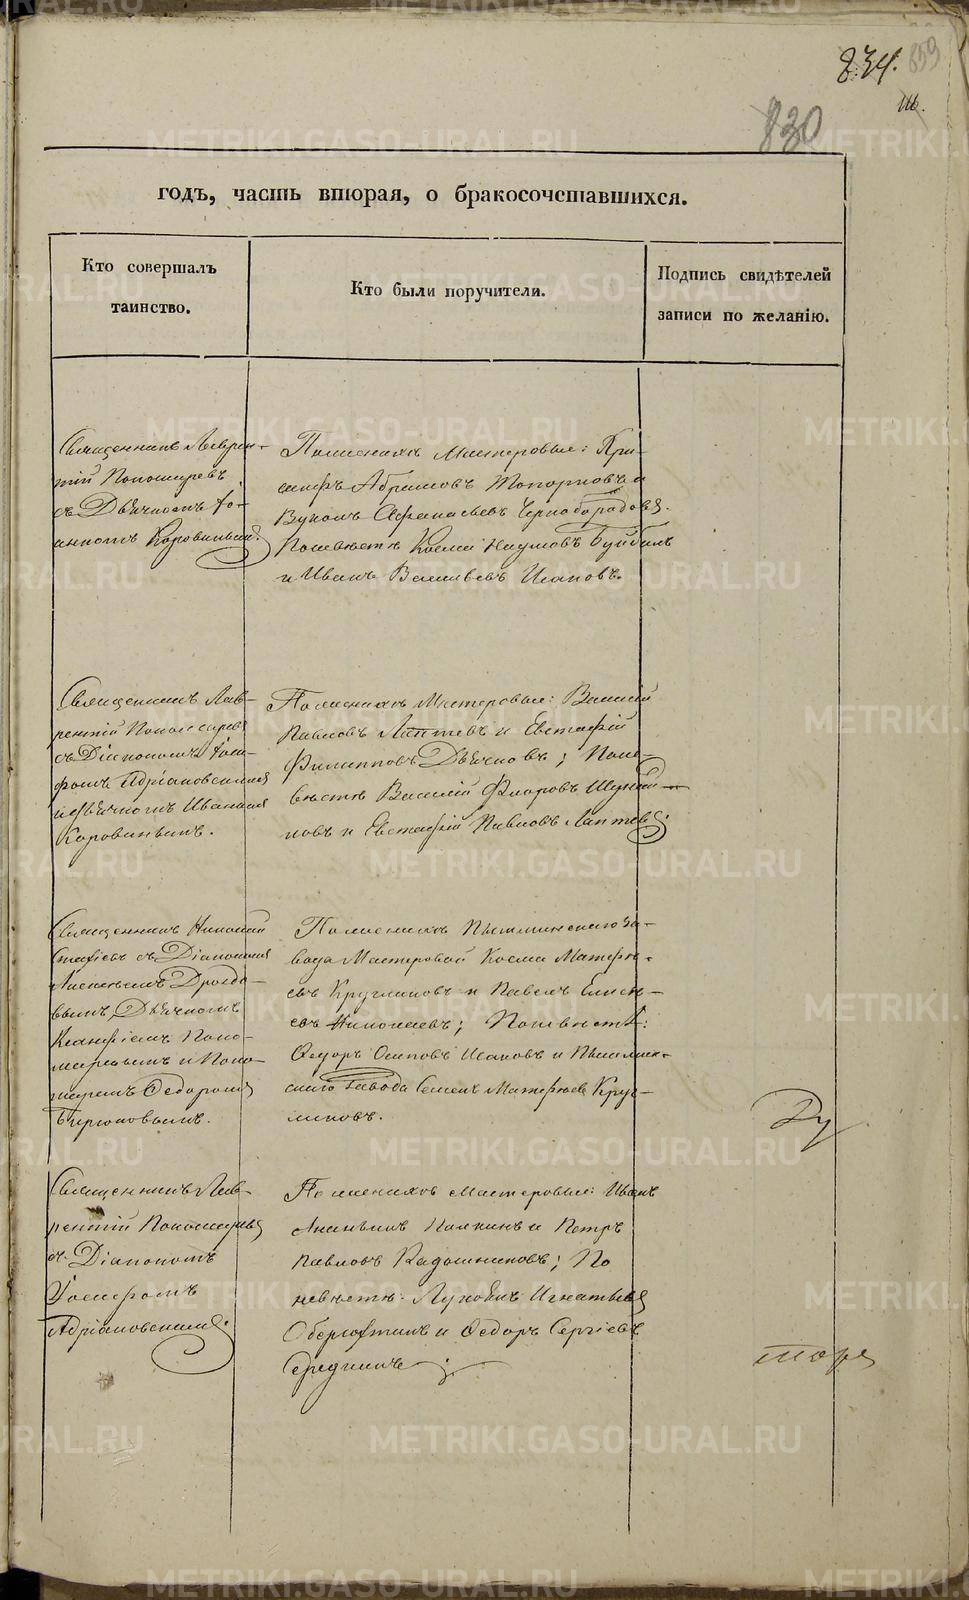 834. 859
830
годъ, часть вторая, о бракосочетавшихся.
Кто совершалъ
таинство.
Кто были поручители.
Подпись свидѣтелей
записи по желанію.
Священникъ Лаврен-
тій Пономаревъ
съ Дьячкомъ Іо-
анномъ Коровинымъ.
По женихѣ Мастеровые:
Абрамовъ Топорковъ и
Вуколъ Афанасьевъ Чернобородовъ.
По невѣстѣ Косма Наумовъ
и Иванъ Васильевъ Исаковъ.
Священникъ Лав-
рентій Пономаревъ
съ Діакономъ Іоси-
фомъ Адріановскимъ
и Дьячкомъ Иваномъ
Коровинымъ.
По женихѣ Мастеровые: Василій
Павловъ Лаптевъ и Евстафій
Филипповъ Дьячковъ; По не-
вѣстѣ Василій Флоровъ
и Евстафій Павловъ Лаптевъ.
Священникъ Николай
съ Діакономъ
Алексѣемъ Дрозdо-
вымъ, Дьячкомъ
Поно-
маревымъ и Поно-
маремъ Ѳедоромъ
Бирюковымъ.
По женихѣ Пышминскаго За-
вода Мастеровой Косма Матфѣ-
евъ Кругликовъ и Павелъ
Николаевъ; По невѣстѣ:
Ѳедоръ Осиповъ Исаковъ и Пышмин-
скаго Завода Семенъ Матфѣевъ Круг-
ликовъ.
Священникъ Лав-
рентій Пономаревъ
съ Діакономъ
Іосифомъ
Адріановскимъ.
По женихѣ мастеровые: Иванъ
Ананьинъ и Петръ
Павловъ Кадошниковъ; По
невѣстѣ: Игнатьевъ
и Ѳедоръ Сергіевъ
METRIKI.GASO-URAL.RU